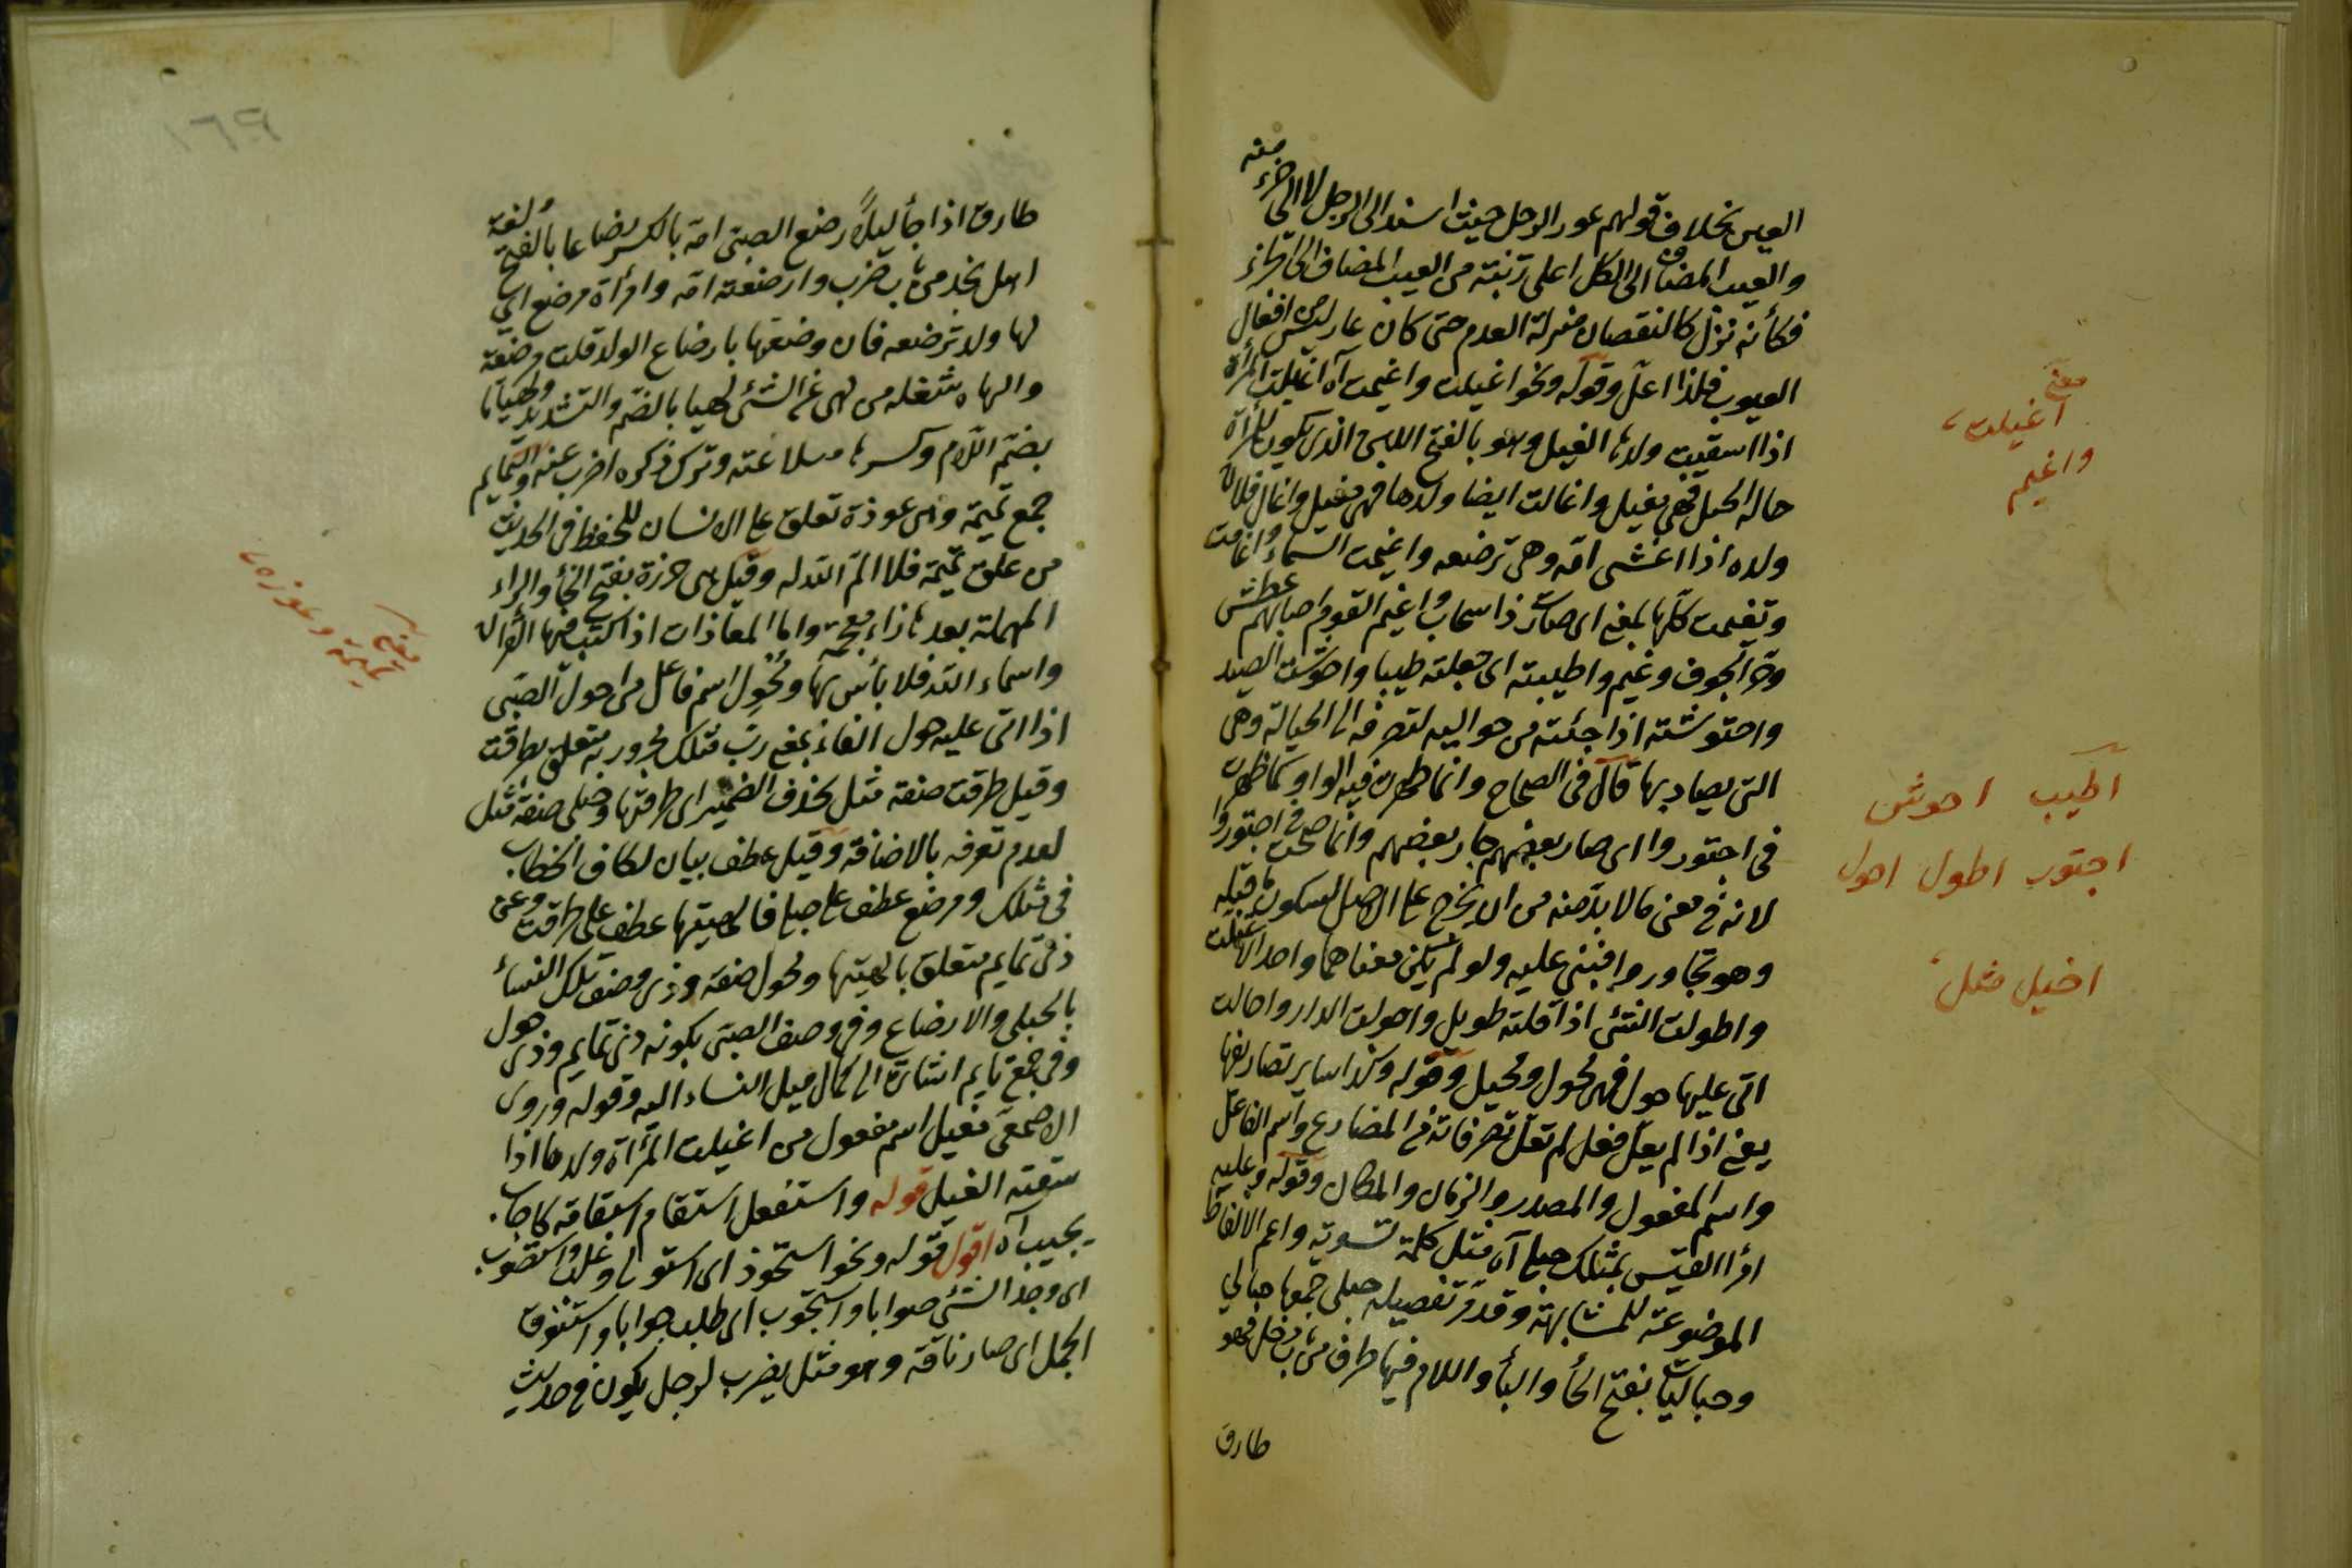 العين بخلاف قولهم عور الرجل حيث اسند الى الرجل لا الى جزء منه
والعيب المضاف الى الكل اعلى رتبة من العيب المضاف الى الجزء
فكأنه نزل كالنقصان منزلة العدم حتى كان عار ليس من افعال
العيوب فلذا اعل وقوله ونحو اغيلت واغيمت آه اغيلت المرأة
اذا سقيت ولدها الغيل وهو بالفتح اللبن الذى يكون للمرأة
حالة الحبل فهى مغيل واغالت ايضا ولدها فهى مغيل واغال فلان
ولده اذا غشى امه وهى ترضعه واغيمت السماء واغامت
وتغيمت كلها بمعنى اى صارت ذا سحاب واغيم القوم اصابهم عطش
وحر الجوف وغيم واطيبته اى جعلته طيبا واحوشت الصيد
واحتوشته اذا جئته من حواليه لتصرفه الى الحبالة وهى
التى يصاد بها قال فى الصحاح وانما ظهرت فيه الواو كما ظهرت
فى اجتوروا اى صار بعضهم جار بعضهم وانما صحت فى اجتوروا
لانه فى معنى مالا بد منه من ان يخرج على الاصل لسكون ما قبله
وهو تجاوروا فبنى عليه ولو لم يكن معناهما واحد لاعتلت
واطولت الشئ اذا قلته طويل واحولت الدار واحالت
اتى عليها حول فهى محول ومحيل وقوله وكذا ساير تصاريفها
يعنى اذا لم يعل فعل لم تعل تصرفاته فى المضارع واسم الفاعل
واسم المفعول والمصدر والزمان والمكان وقوله وعليه
امرأ القيس بمثلك حبلى آه مثل كلمة تسوية واعم الالفاظ
الموضوعة للمشابهة وقد مر تفصيله حبلى جمعها حبالى
وحباليات بفتح الحأ والبأ واللام فيها طرق من باب دخل فهو
طارق
معنى
اغيلت
واغيم
اطيب احوش
اجتور اطول احول
اخيل مثل
طارق اذا جأ ليلاً رضع الصبى امه بالكسر رضاعا بالفتح ولغة
اهل نجد من باب ضرب وارضعته امه وامرأة مرضع اى
لها ولد ترضعه فان وصفتها بارضاع الولد قلت مرضعة
والهاه شغله من لهى عن الشئ لهيا بالضم والتشديد ولهيانا
بضم اللام وكسرها سلا عنه وترك ذكره اضرب عنه والتمايم
جمع تميمة وهى عوذة تعلق على الانسان للحفظ فى الحديث
من علق تميمة فلا اتم الله له وقيل هى خرزة بفتح الخأ والراء
المهملة بعدها زاء معجمة واما المعاذات اذا كتب فيها القرآن
واسماء الله فلا بأس بها ومحول اسم فاعل من احول الصبى
اذا اتى عليه حول الفاء بمعنى رب فمثلك مجرور به متعلق بطرقت
وقيل طرقت صفة مثل بحذف الضمير اى طرقتها وحبلى صفة مثل
لعدم تعرفه بالاضافة وقيل عطف بيان لكاف الخطاب
فى مثلك ومرضع عطف على حبلى فالهيتها عطف على طرقت وعن
ذى تمايم متعلق بالهيتها ومحول صفة وذى وصف تلك النسأ
بالحبلى والارضاع وفى وصف الصبى بكونه ذى تمايم وذى حول
وفى جمع تمايم اشارة الى كمال ميل النساء اليه وقوله وروى
الاصمعى مغيل اسم مفعول من اغيلت المرأة ولدها اذا
سقته الغيل قوله واستفعل استقام استقامة كاجاب
يجيب آه اقول قوله ونحو استحوذ اى استولى وغلب واستصوب
اى وجد الشئ صوابا واستجوب اى طلب جوابا واستنوق
الجمل اى صار ناقة وهو مثل يضرب لرجل يكون فى حديث
معنى
تميمة وعوذه